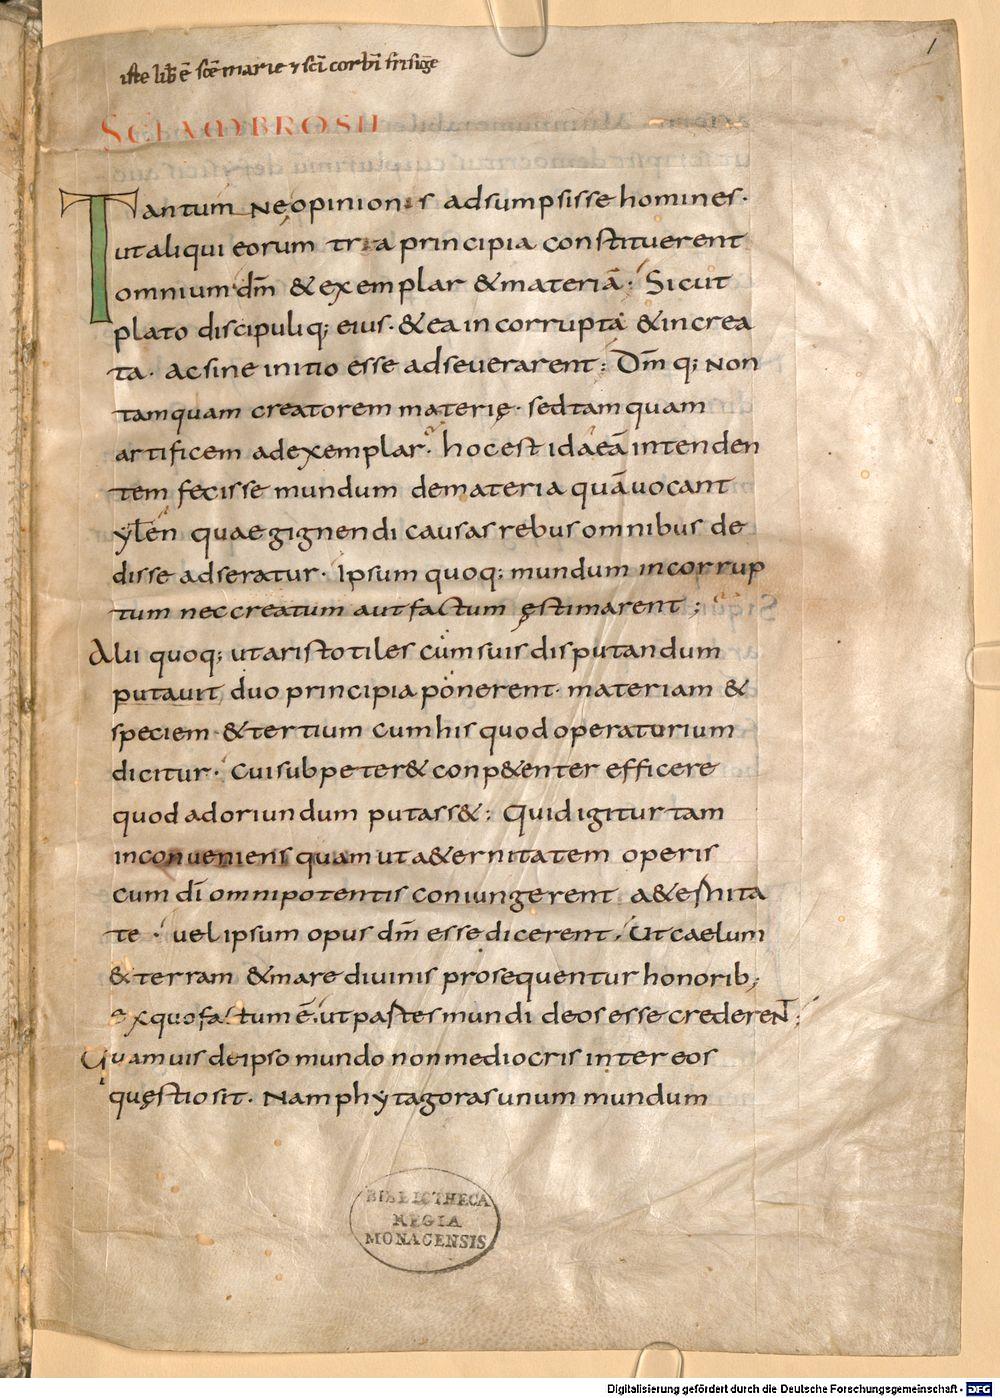 1
iste lib̄ ē scē marie ⁊ sc̄i corbī frisīgē
SCI AMBROSII
Tantum neopinionis adsumpsisse homines·
ut aliqui eorum tria principia constituerent
omnium dm̄ & exemplar & materiā· Sicut
plato discipuliq; eius· & ea incorrupta & increa
ta· ac sine initio esse adseverarent; Dm̄ q; non
tamquam creatorem materię· sed tamquam
artificem ad exemplar· hoc est idaeā intenden
tem fecisse mundum de materia quā vocant
ylen quae gignendi causas rebus omnibus de
disse adseratur· Ipsum quoq; mundum incorrup
tum nec creatum aut factum ęstimarent;
Alii quoq; ut aristotiles cum suis disputandum
putavit, duo principia ponerent· materiam &
speciem· & tertium cum his quod operatorium
dicitur· cui subpeter& conp&enter efficere
quod adoriundum putass&; Quid igitur tam
inconveniens quam ut a&ernitatem operis
cum dī omnipotentis coniungerent a&ernita
te· vel ipsum opus dm̄ esse dicerent· Ut caelum
& terram & mare divinis prosequerentur honorib;
Ex quo factum ē· ut partes mundi deos esse crederen̄t;
Quamvis de ipso mundo non mediocris inter eos
quęstio sit· Nam phytagoras unum mundum
BIBLIOTHECA
REGIA
MONACENSIS
Digitalisierung gefördert durch die Deutsche Forschungsgemeinschaft - DFG